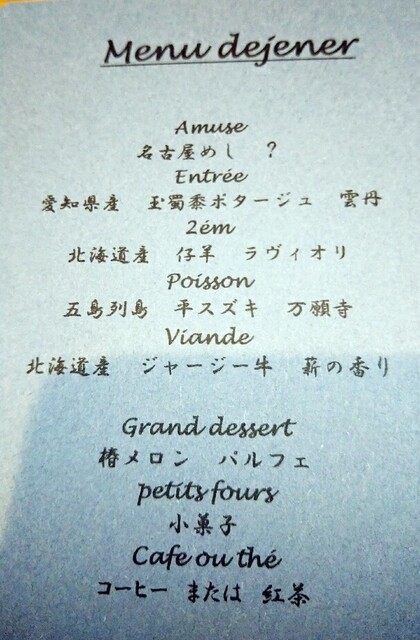 Menu dejener
Amuse
名古屋めし ？
Entrée
愛知県産 玉蜀黍ポタージュ 雲丹
2ém
北海道産 仔羊 ラヴィオリ
Poisson
五島列島 平スズキ 万願寺
Viande
北海道産 ジャージー牛 薪の香り
Grand dessert
椿メロン パルフェ
petits fours
小菓子
Cafe ou thé
コーヒー または 紅茶